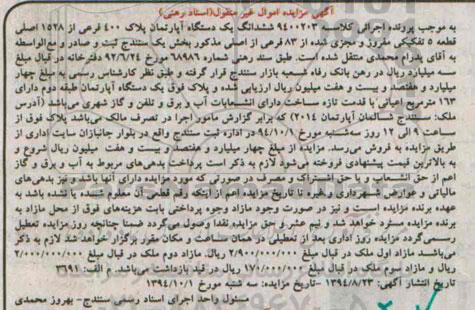 آگهی مزایده اموال غیر منقول(اسناد رهنی)
به موجب پرونده اجرائی کلاسه ۹۴۰۰۲۰۳ ششدانگ یک دستگاه آپارتمان پلاک ۴۰۰ فرعی از ۱۵۲۸ اصلی
قطعه ۵ تفکیکی مفروز و مجزی شده از ۸۳ فرعی از اصلی مذکور بخش یک سنندج ثبت و صادر و مع‌الواسطه
به آقای پدرام محمدی منتقل شده است. طبق سند رهنی شماره ۶۸۹۸۶ مورخ ۹۲/۶/۲۴ دفترخانه در قبال مبلغ
سه میلیارد ریال در رهن بانک رفاه شعبه بازار سنندج قرار گرفته و طبق نظر کارشناس رسمی به مبلغ چهار
میلیارد و هفتصد و بیست و هفت میلیون ریال ارزیابی شده و پلاک فوق یک دستگاه آپارتمان طبقه دوم دارای
۱۶۳ مترمربع اعیانی با قدمت تازه ساخت دارای انشعابات آب و برق و تلفن و گاز شهری می‌باشد (آدرس
ملک: سنندج شالمان آپارتمان ۲۰۱۴) که برابر گزارش مامور اجرا در تصرف مالک می‌باشد پلاک فوق از
ساعت ۹ الی ۱۲ روز سه‌شنبه مورخ ۹۴/۱۰/۱ در اداره ثبت سنندج واقع در بلوار جانبازان سایت اداری از
طریق مزایده به فروش می‌رسد. مزایده از مبلغ چهار میلیارد و هفتصد و بیست و هفت میلیون ریال شروع و
به بالاترین قیمت پیشنهادی فروخته می‌شود لازم به ذکر است پرداخت بدهی‌های مربوط به آب و برق و گاز
اعم از حق انشعاب و یا حق اشتراک و مصرف در صورتی که مورد مزایده دارای آنها باشد و نیز بدهی‌های
مالیاتی و عوارض شهرداری و غیره تا تاریخ مزایده اعم از اینکه رقم قطعی آن معلوم شده یا نشده باشد به
عهده برنده مزایده است و نیز در صورت وجود مازاد وجوه پرداختی بابت هزینه‌های فوق از محل مازاد به
برنده مزایده مسترد خواهد شد و نیم عشر و حق مزایده نقدا وصول می‌گردد ضمنا چنانچه روز مزایده تعطیل
رسمی گردد مزایده روز اداری بعد از تعطیلی در همان ساعت و مکان مقرر برگزار خواهد شد لازم به ذکر
می‌باشد مازاد اول ملک در قبال مبلغ ۲/۹۰۰/۰۰۰/۰۰۰ ریال. مازاد دوم ملک در قبال مبلغ ۲/۰۰۰/۰۰۰/۰۰۰
ریال و مازاد سوم ملک در قبال مبلغ ۱۷۰/۰۰۰/۰۰۰ ریال در قید بازداشت می‌باشد. م الف: ۳۶۹۱
تاریخ انتشار آگهی: ۱۳۹۴/۸/۲۳ -تاریخ مزایده: سه شنبه مورخ ۱۳۹۴/۱۰/۱
مسئول واحد اجرای اسناد رسمی سنندج- بهروز محمدی